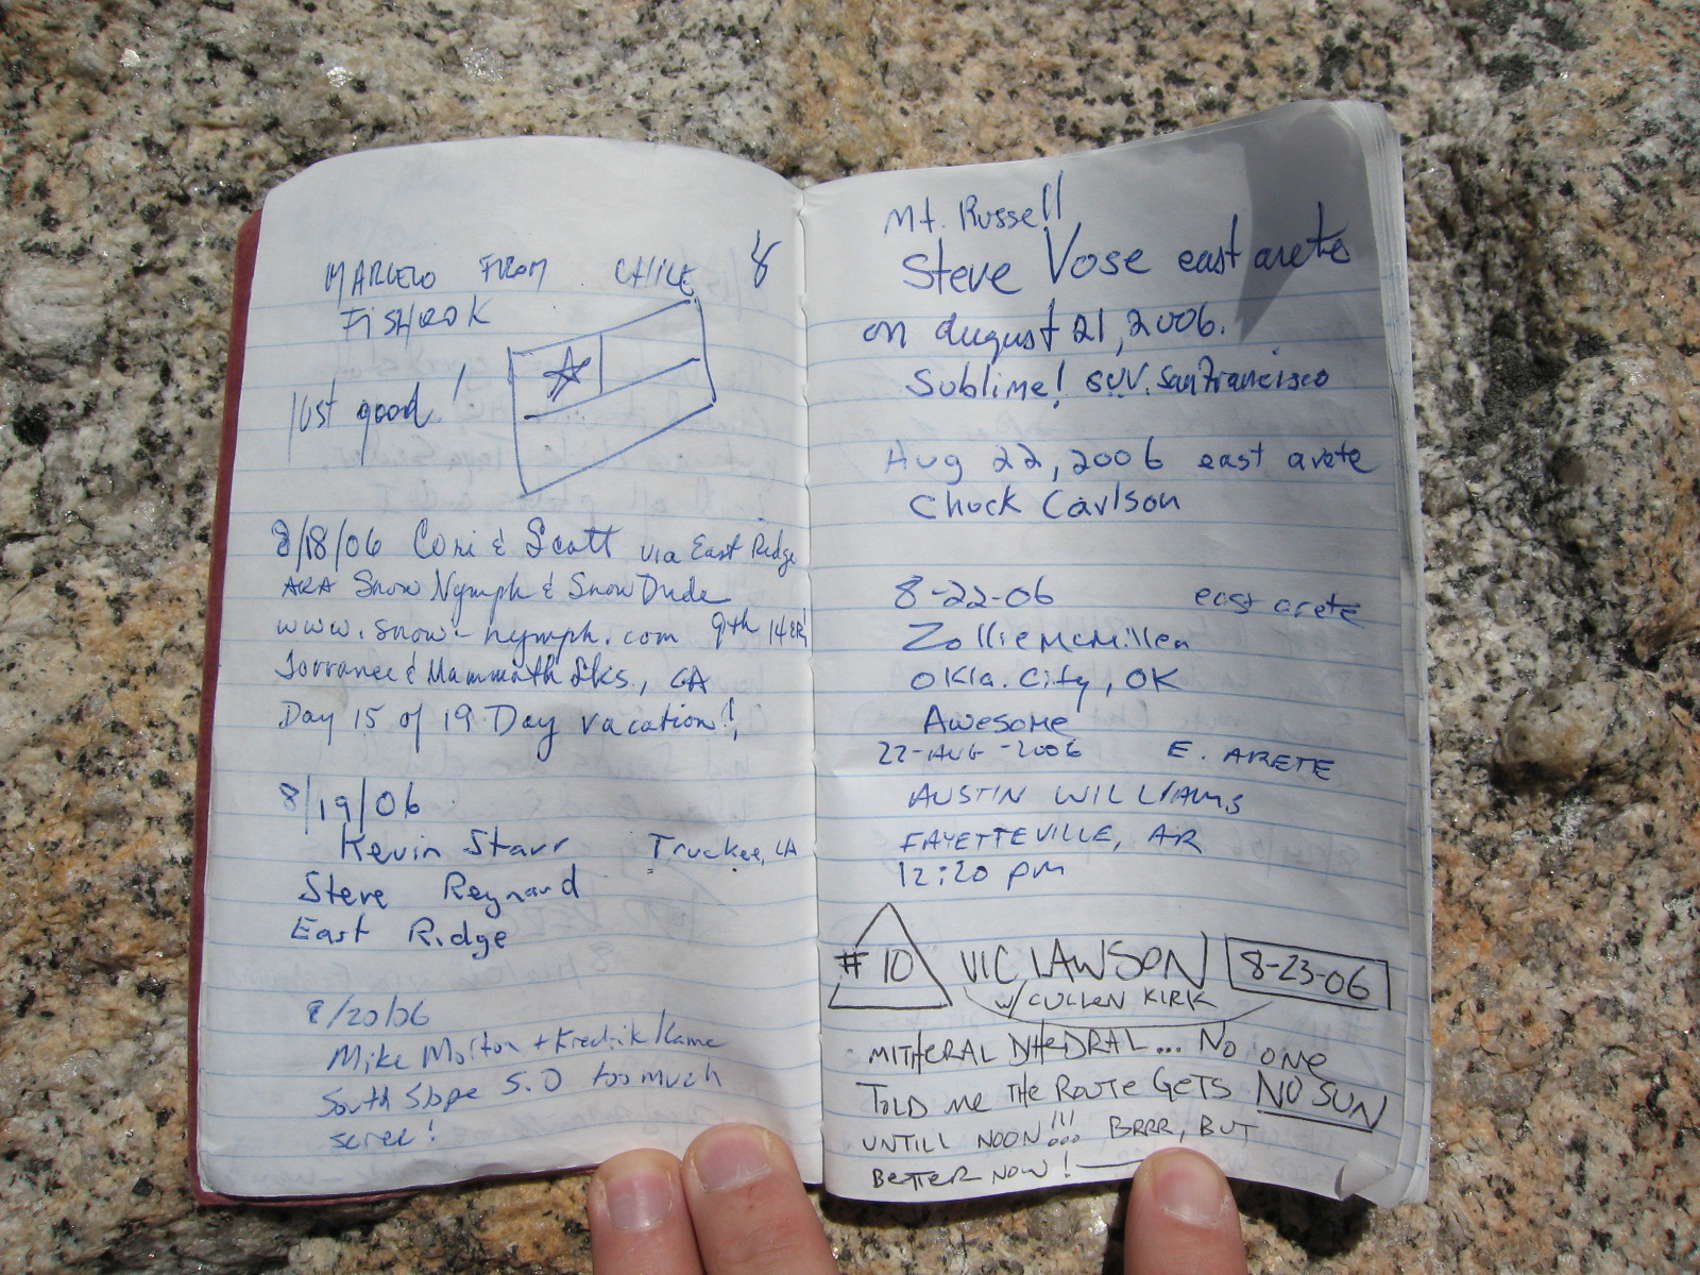 MARCELO FROM CHILE 8
FISHOOK
Just good!
8/18/06 Cori & Scott via East Ridge
AKA Snow Nymph & SnowDude
www.snow-nymph.com 9th 14ER!
Torrance & Mammoth Lks., CA
Day 15 of 19 Day vacation!,
8/19/06
Kevin Starr Truckee, CA
Steve Reynard
East Ridge
8/20/06
Mike Morton + Fredrik
South Slope 5.0 too much
scree!
Mt. Russell
Steve Vose east arete
on august 21, 2006.
Sublime! San Francisco
Aug 22, 2006 east arete
Chuck Carlson
8-22-06 east arete
Zollie McMillen
Okla. City, OK
Awesome
22-AUG-2006 E. ARETE
AUSTIN WILLIAMS
FAYETTEVILLE, AR
12:20 pm
#10 VIC LAWSON 8-23-06
w/ CULLEN KIRK
MITHERAL DIHEDRAL... NO ONE
TOLD ME THE ROUTE GETS NO SUN
UNTILL NOON!!! BRRR, BUT
BETTER NOW!